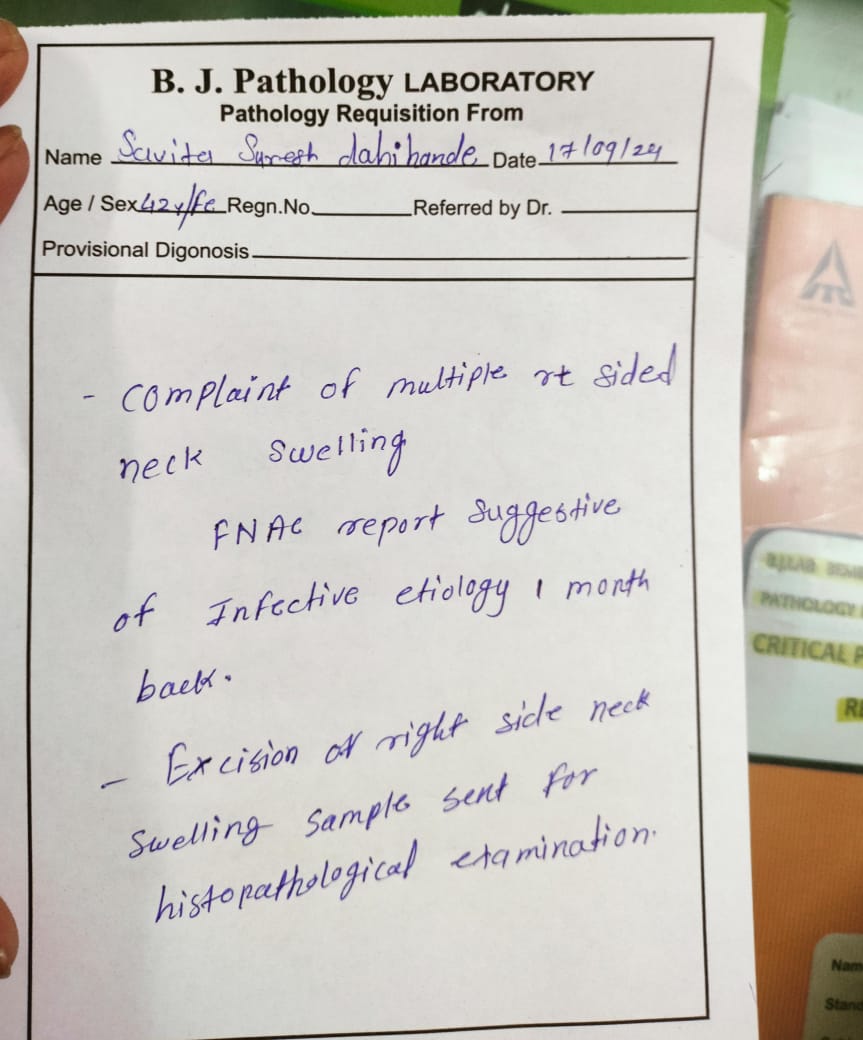 B. J. Pathology LABORATORY
Pathology Requisition From
Name Savita Suresh dahihande Date 17/09/24
Age / Sex 42y/fe Regn.No. Referred by Dr.
Provisional Digonosis
- complaint of multiple rt sided
neck swelling
FNAC report suggestive
of Infective etiology 1 month
back.
- Excision of right side neck
swelling sample sent for
histopathological examination.
PATHOLOGY
CRITICAL
Nam